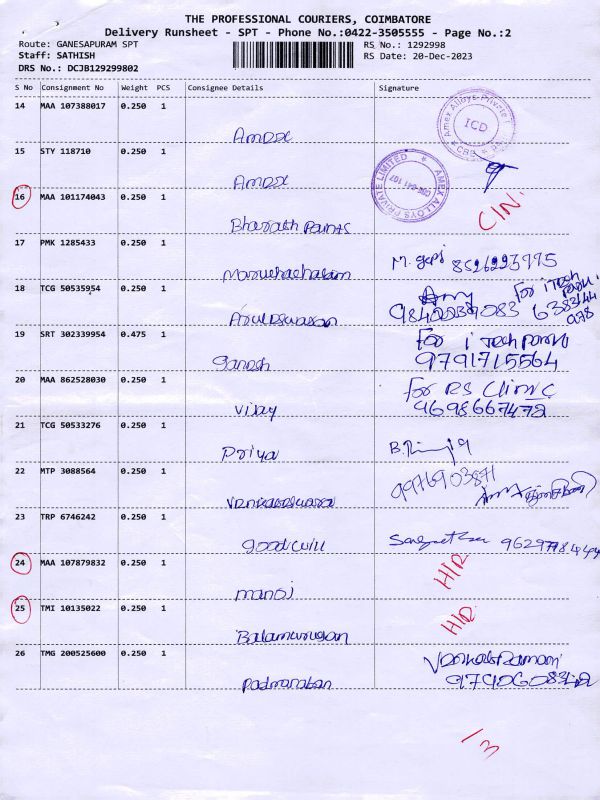 THE PROFESSIONAL COURIERS, COIMBATORE
Delivery Runsheet - SPT - Phone No.:0422-3505555 - Page No.:2
Route: GANESAPURAM SPT RS No.: 1292998
Staff: SATHISH RS Date: 20-Dec-2023
DRS No.: DCJB129299802
S No Consignment No Weight PCS Consignee Details Signature
14 MAA 107388017 0.250 1
Amex
Amex Alloys Private
ICD
CBE
15 STY 118710 0.250 1
Amex
AMEX ALLOYS PRIVATE LIMITED
CBE-641 107
16 MAA 101174043 0.250 1
Bharath Paints
CIN.
17 PMK 1285433 0.250 1
Marudhachalam
M. gopi 8526223995
18 TCG 50535954 0.250 1
Aruleswaran
For i Tech Park
19 SRT 302339954 0.475 1
Ganesh
For i Tech Park
9791715564
20 MAA 862528030 0.250 1
Vijay
for RS Clinic
9698667472
21 TCG 50533276 0.250 1
Priya
22 MTP 3088564 0.250 1
Venkateshwara
9976903871
23 TRP 6746242 0.250 1
goodwill
24 MAA 107879832 0.250 1
manoj
HIR
25 TMI 10135022 0.250 1
Balamurugan
HIR
26 TMG 200525600 0.250 1
Padmanaban
VenkatRamani
13